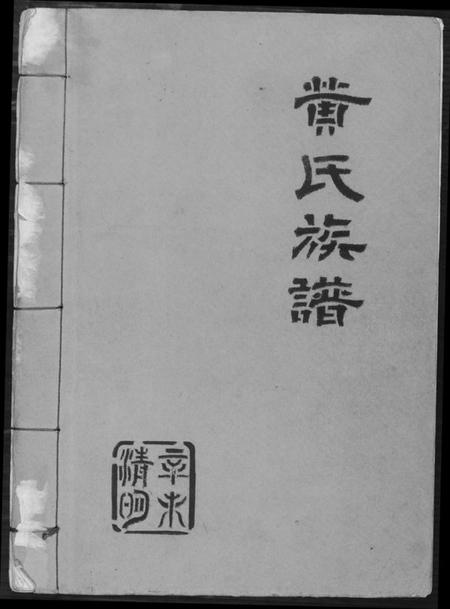 黄氏族譜
辛未
清明